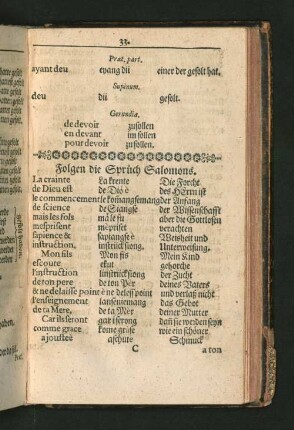 33.
Præt. part.
ayant deu eyang dü einer der gesolt hat.
Supinum.
deu dü gesolt.
Gerundia.
de devoir zusollen
en devant im sollen
pour devoir zusollen.
Folgen die Sprüch Salomons.
La crainte La krente Die Forcht
de Dieu est de Diö è des HErrn ist
le commencement le komangsemang der Anfang
de science de Siangse der Wissenschafft
mais les fols mä le fu aber die Gottlosen
mesprisent méprisét verachten
sapience & sapiangse è Weisheit und
instruction. instruksiong. Unterweisung.
Mon fils Mon fis Mein Kind
escoute ekut gehorche
l'instruction linstricksiong der Zucht
de ton pere de ton Per deines Vaters
& ne delaisse point è ne deless point und verlaß nicht
l'enseignement lansengemang das Gebot
de ta Mere, de ta Mèr deiner Mutter
Car ils seront gar i serong dañ sie werden seyn
comme grace kome grase wie ein schöner
ajoustée aschute Schmuck
C a ton